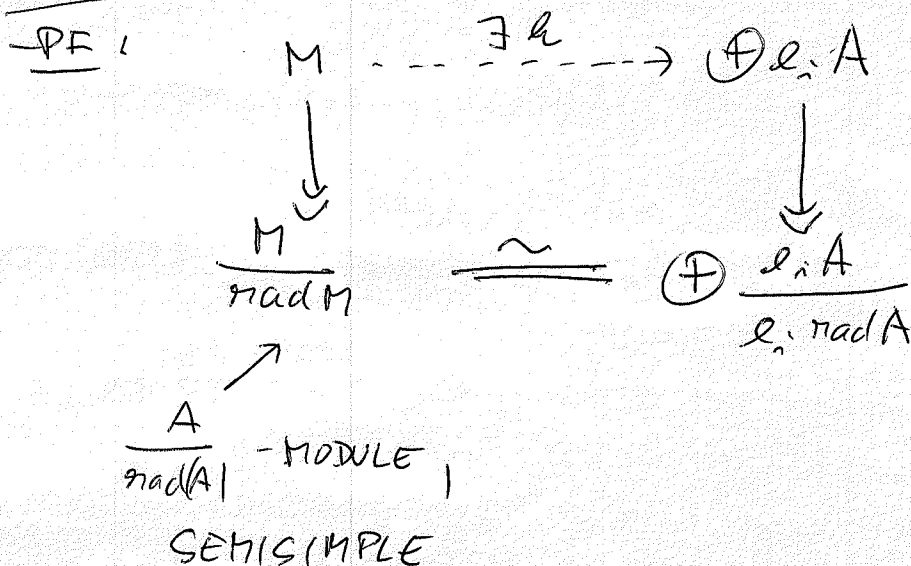 PF:
M - - - ∃ h - - -> ⊕ e_i A
M / rad M ≅ ⊕ e_i A / e_i rad A
A / rad(A) - MODULE,
SEMISIMPLE